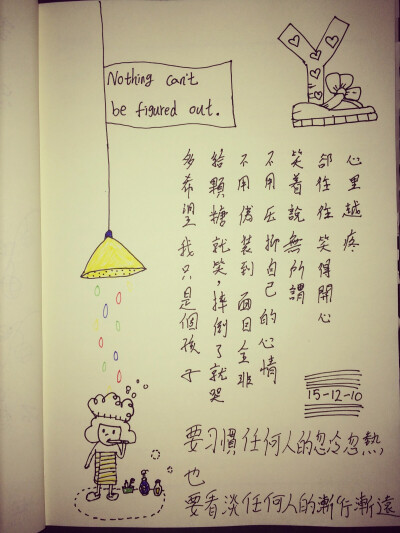 Nothing can't
be figured out.
心里越疼
卻往往笑得開心
笑着說無所謂
不用压抑自己的心情
不用偽裝到面目全非
給顆糖就笑，摔倒了就哭
多希望我只是個孩子
15-12-10
要習慣任何人的忽冷忽熱
也
要看淡任何人的漸行漸遠